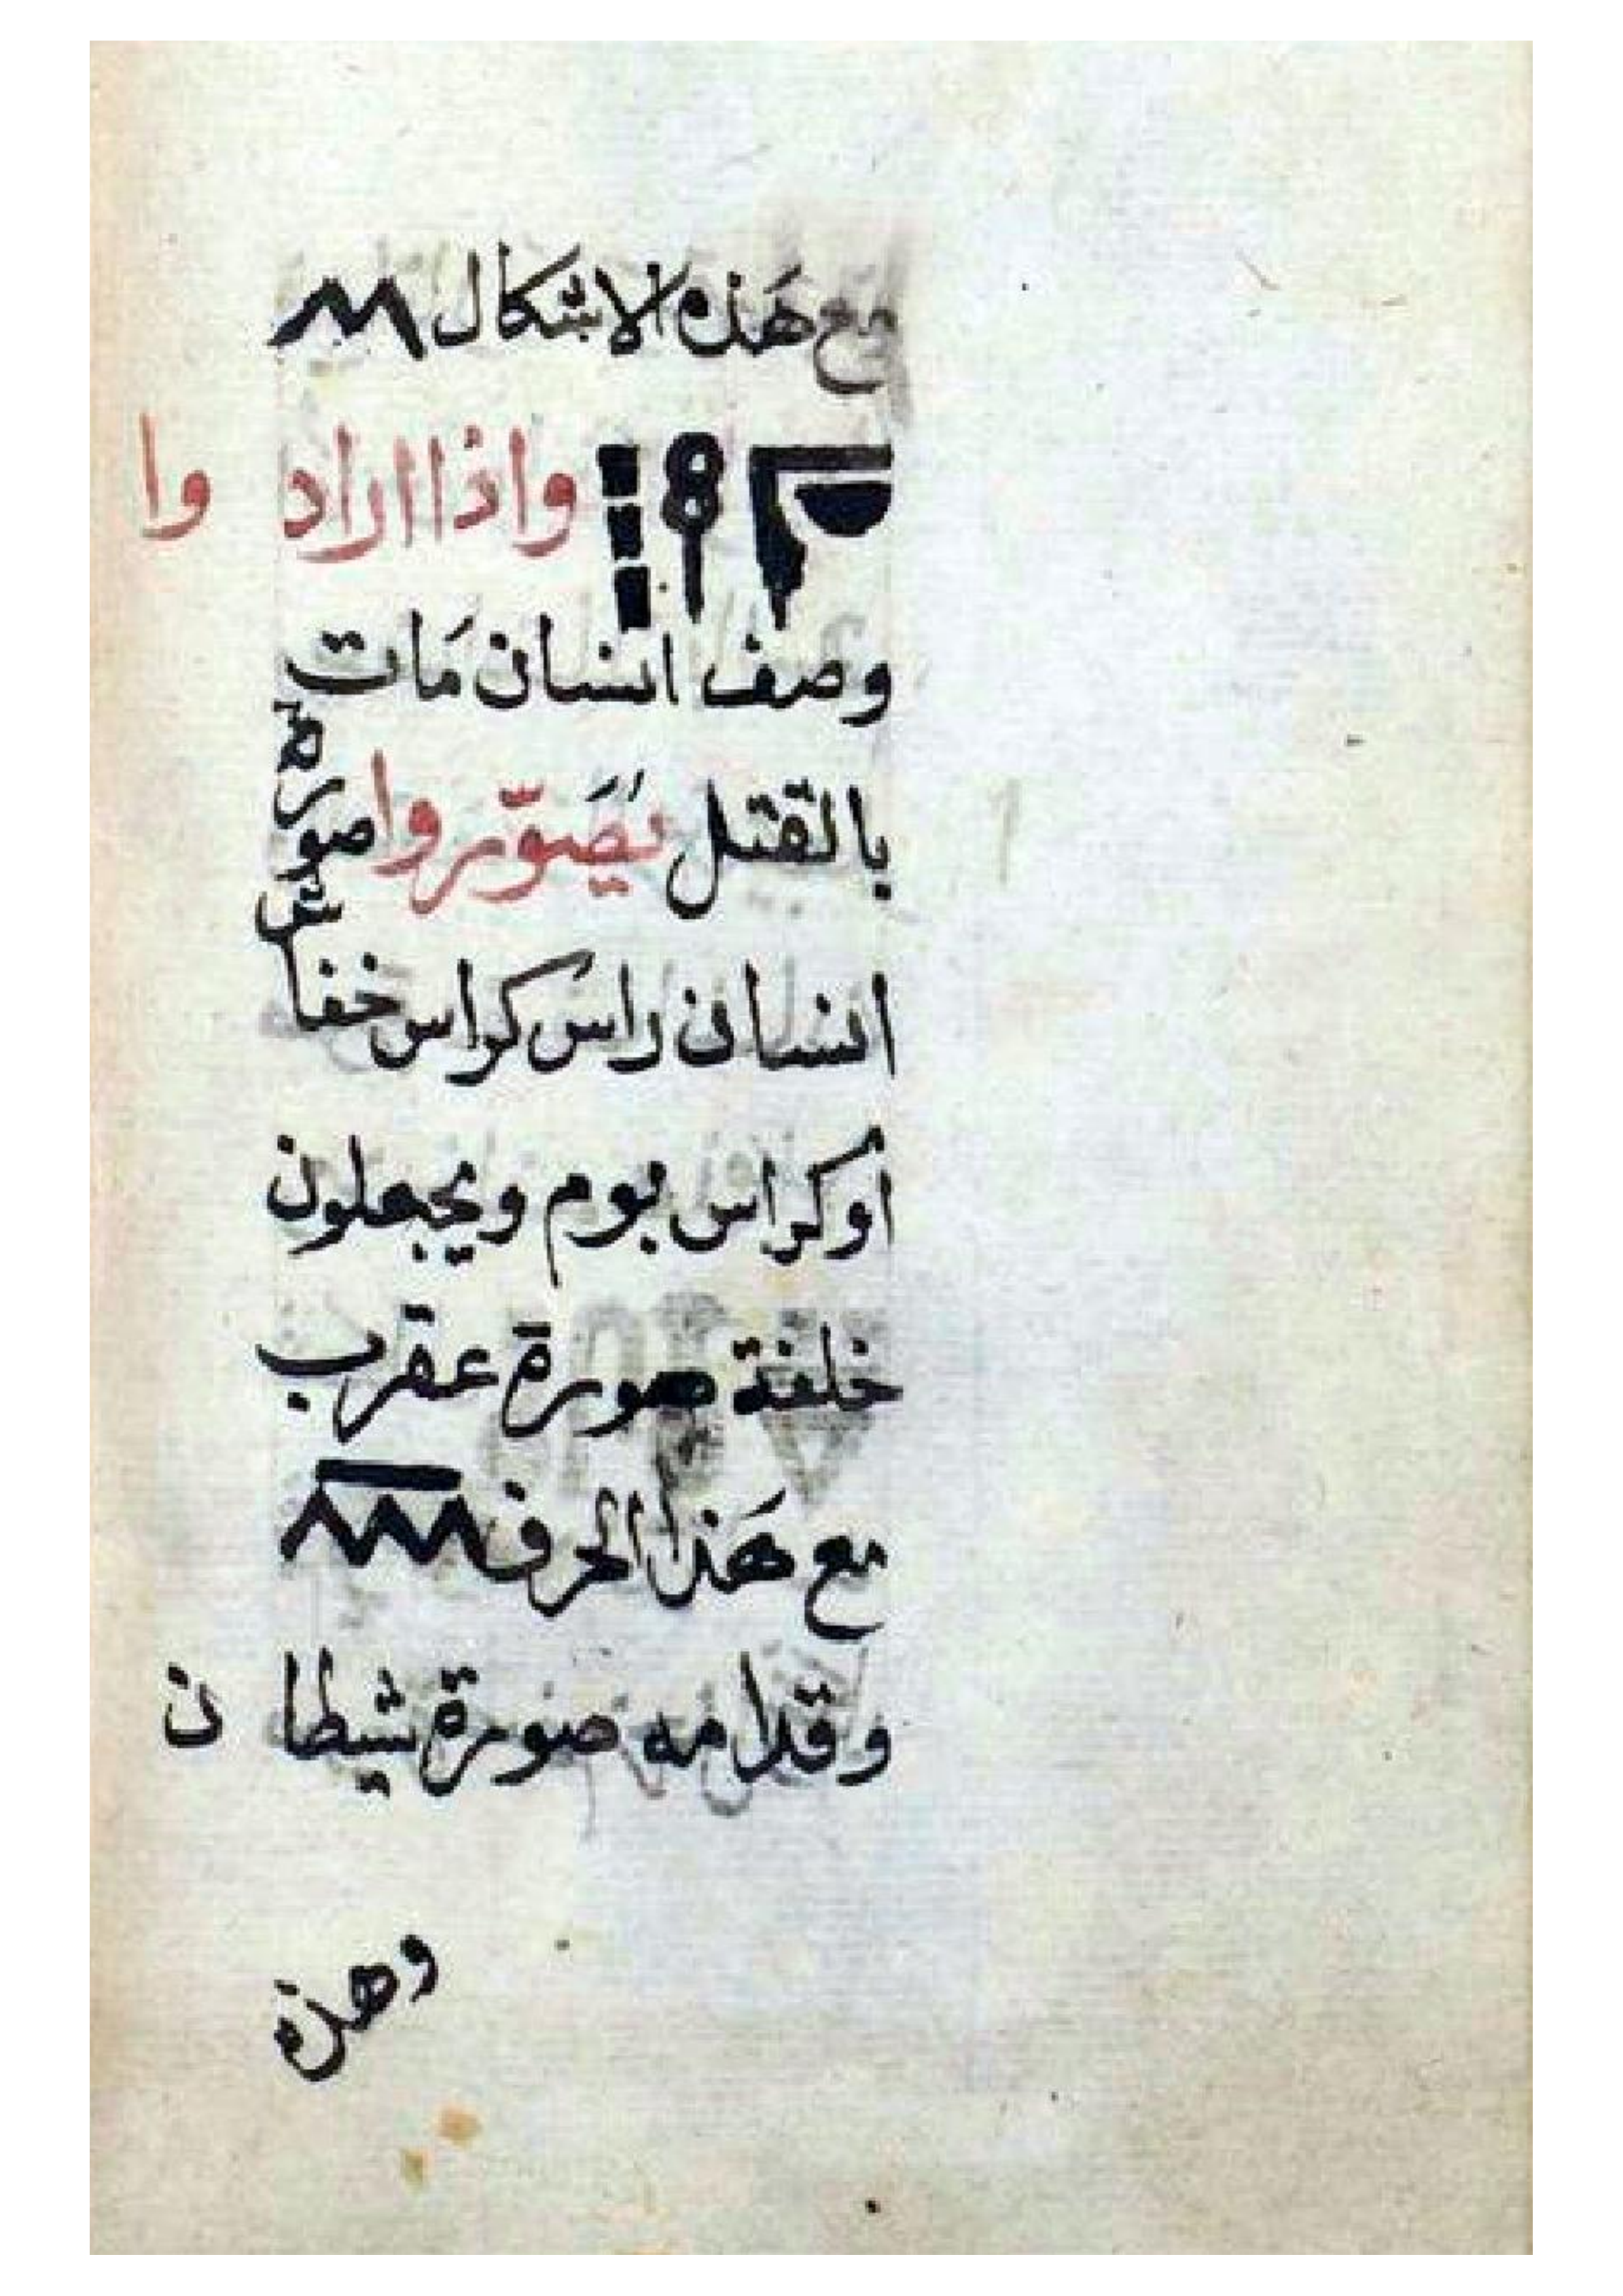 مع هَذه الاشكال
واذا ارادوا
وصف انسان مَات
بالقتل يُصَوّروا صورة
انسان راس كراس خفاش
أو كراس بوم ويجعلون
خلفة صورة عقرب
مع هَذا الحرف
وقدامه صورة شيطان
وهذه